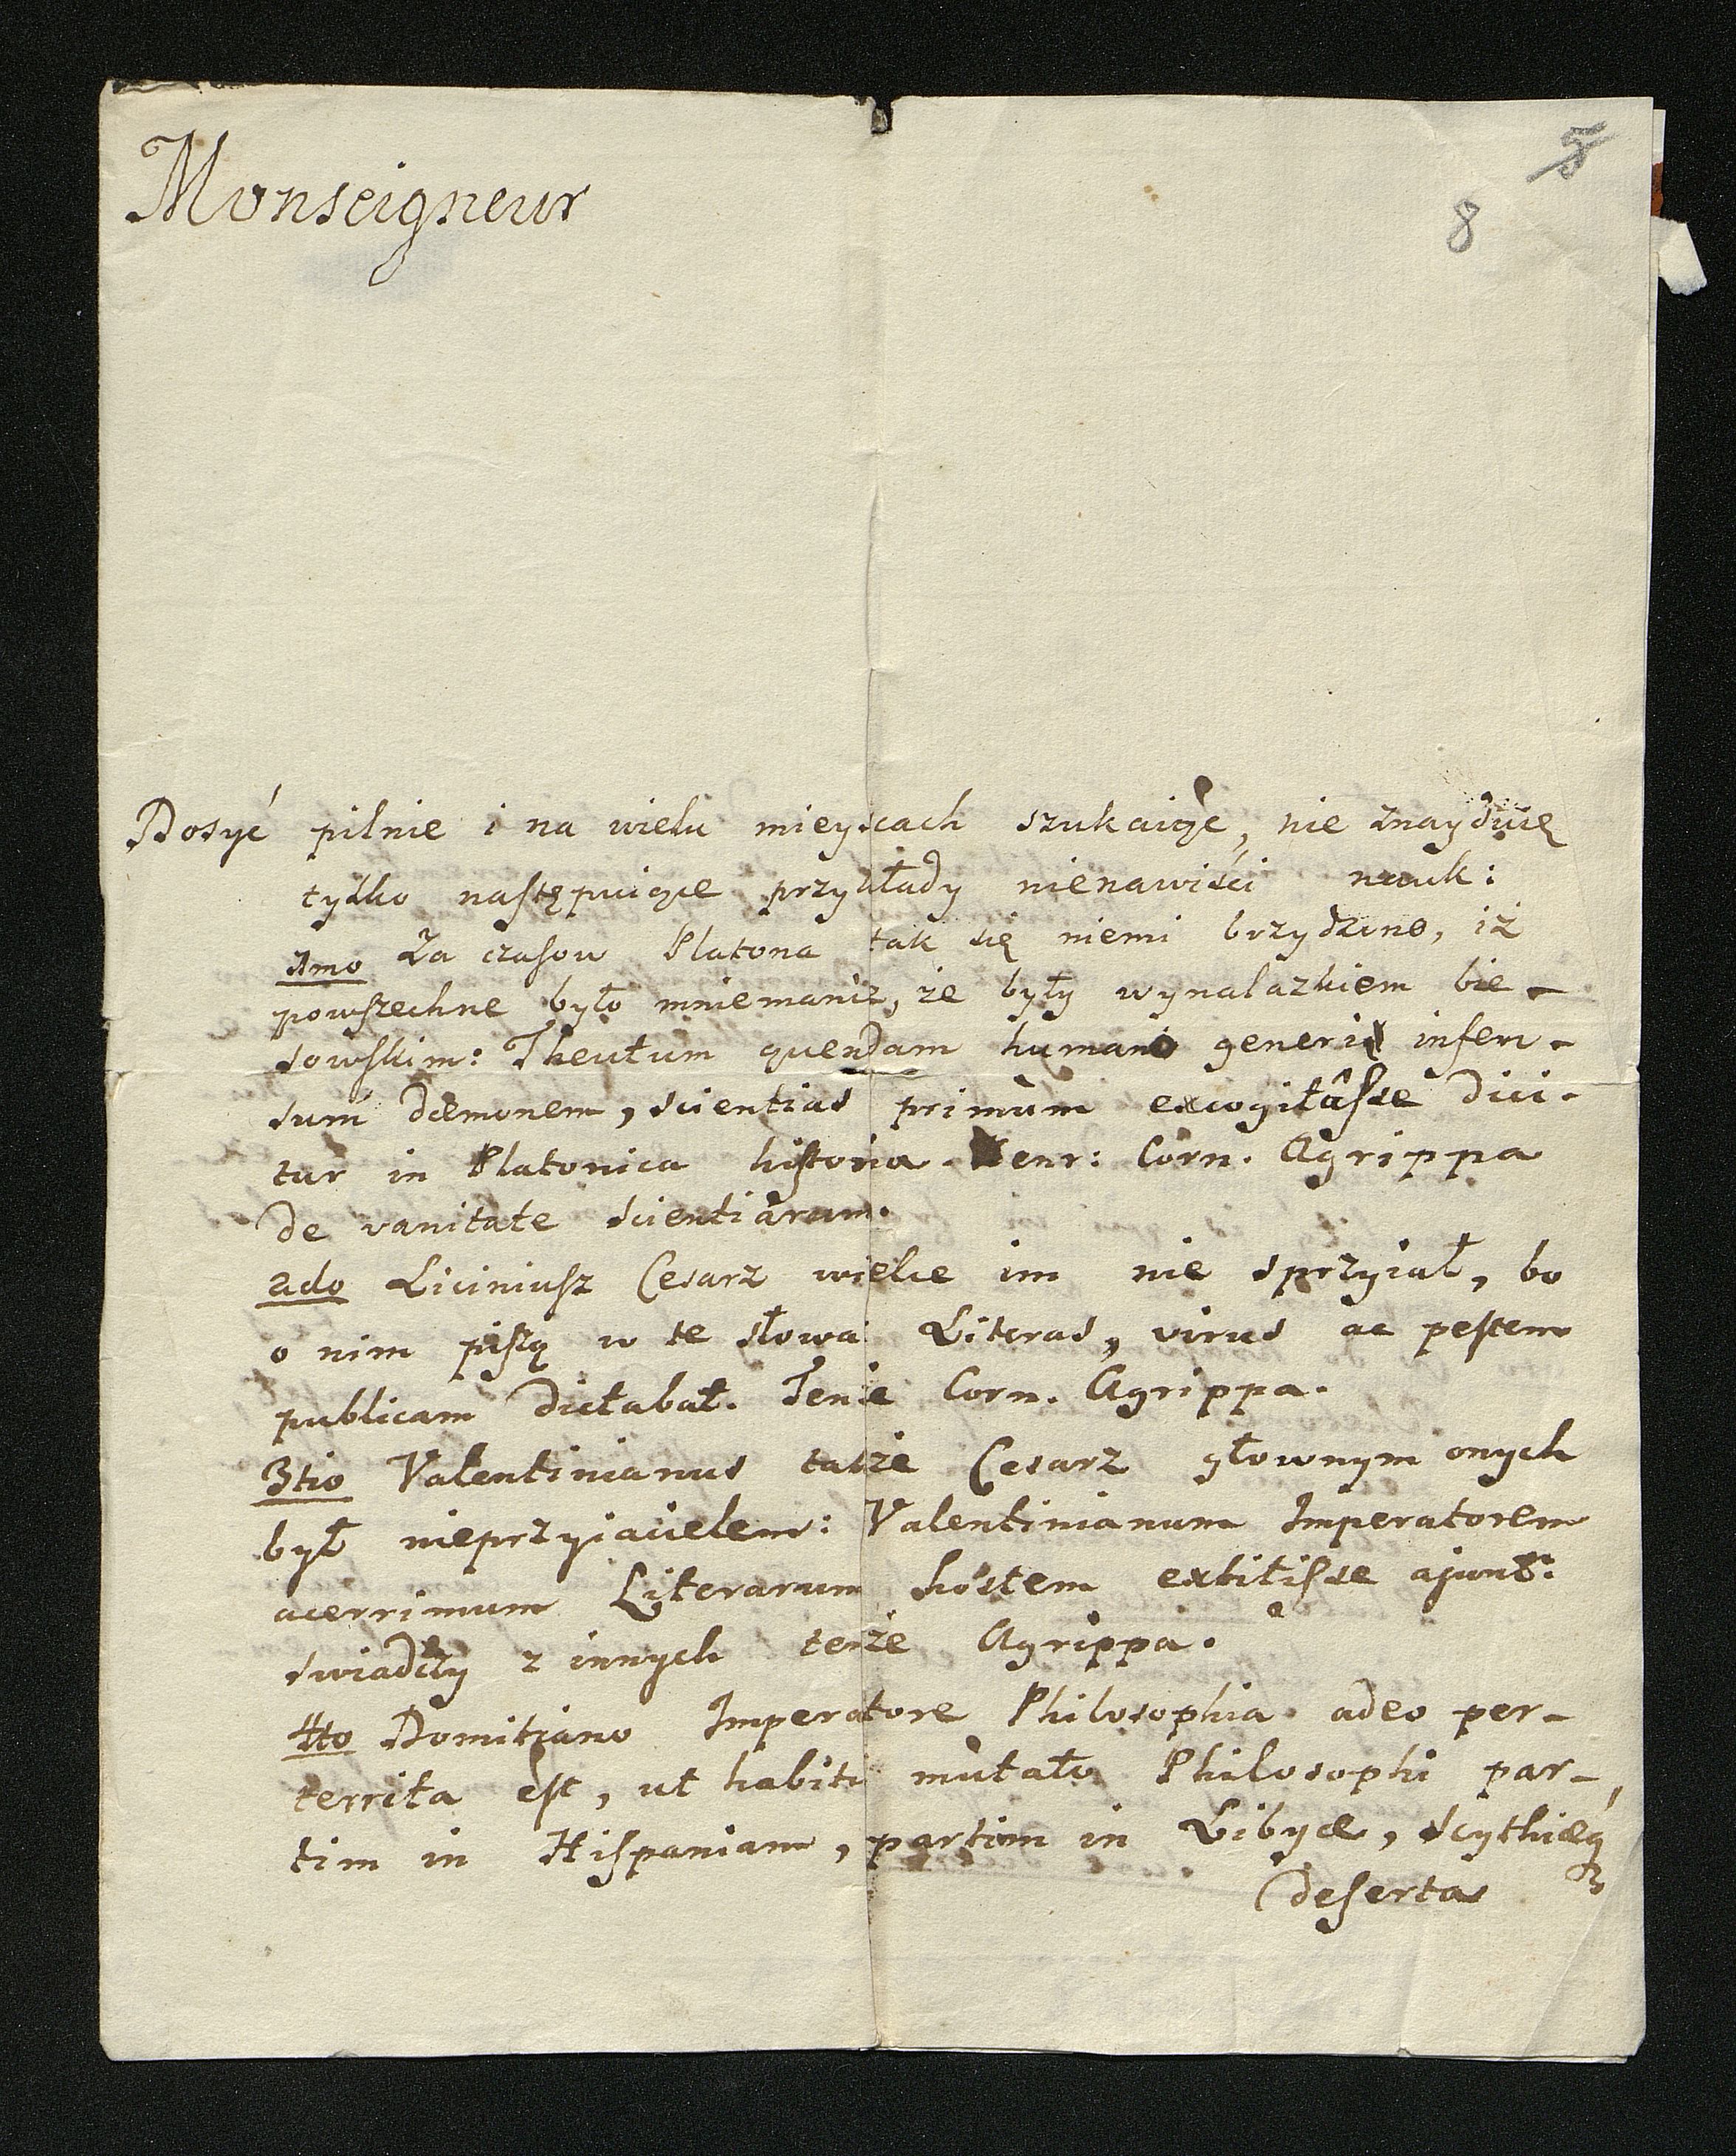 Monseigneur
5
8
Dosyć pilnie i na wielu mieyscach szukaiąc, nie znayduię
tylko następuiące przykłady nienawiści nauk:
1mo Za czasow Platona tak się niemi brzydzono, iż
powszechne było mniemanie, że były wynalazkiem bie-
sowskim: Theutum quendam humano generi infen-
sum dæmonem, scientias primùm excogitâsse dici-
tur in Platonica historia. Henr: Corn. Agrippa
de vanitate scientiarum.
2do Liciniusz Cesarz wielce im nie sprzyiał, bo
o nim piszą w te słowa Literas, virus ac pestem
publicam dictabat. Tenże Corn. Agrippa.
3tio Valentinianus także Cesarz głownym onych
był nieprzyiacielem: Valentinianum Imperatorem
acerrimum Literarum hostem extitisse ajunt:
swiadczy z innych tenże Agrippa.
4to Domitiano Imperatore Philosophia adeo per-
territa est, ut habitu mutato Philosophi par-
tim in Hispaniam, partim in Libyæ, Scythiæq3
deserta